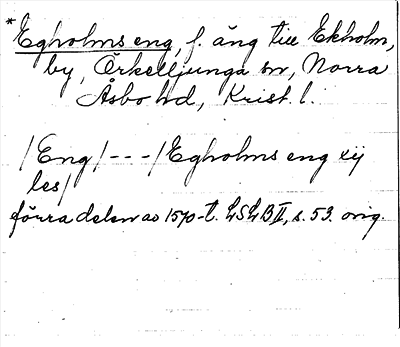 * Egholms eng, f. äng till Ekholm,
by, Örkelljunga sn, Norra
Åsbo hd, Krist. l.
/Eng/---/Egholms eng xij
les/
förra delen av 1570-t. LSLB II, s. 53. orig.